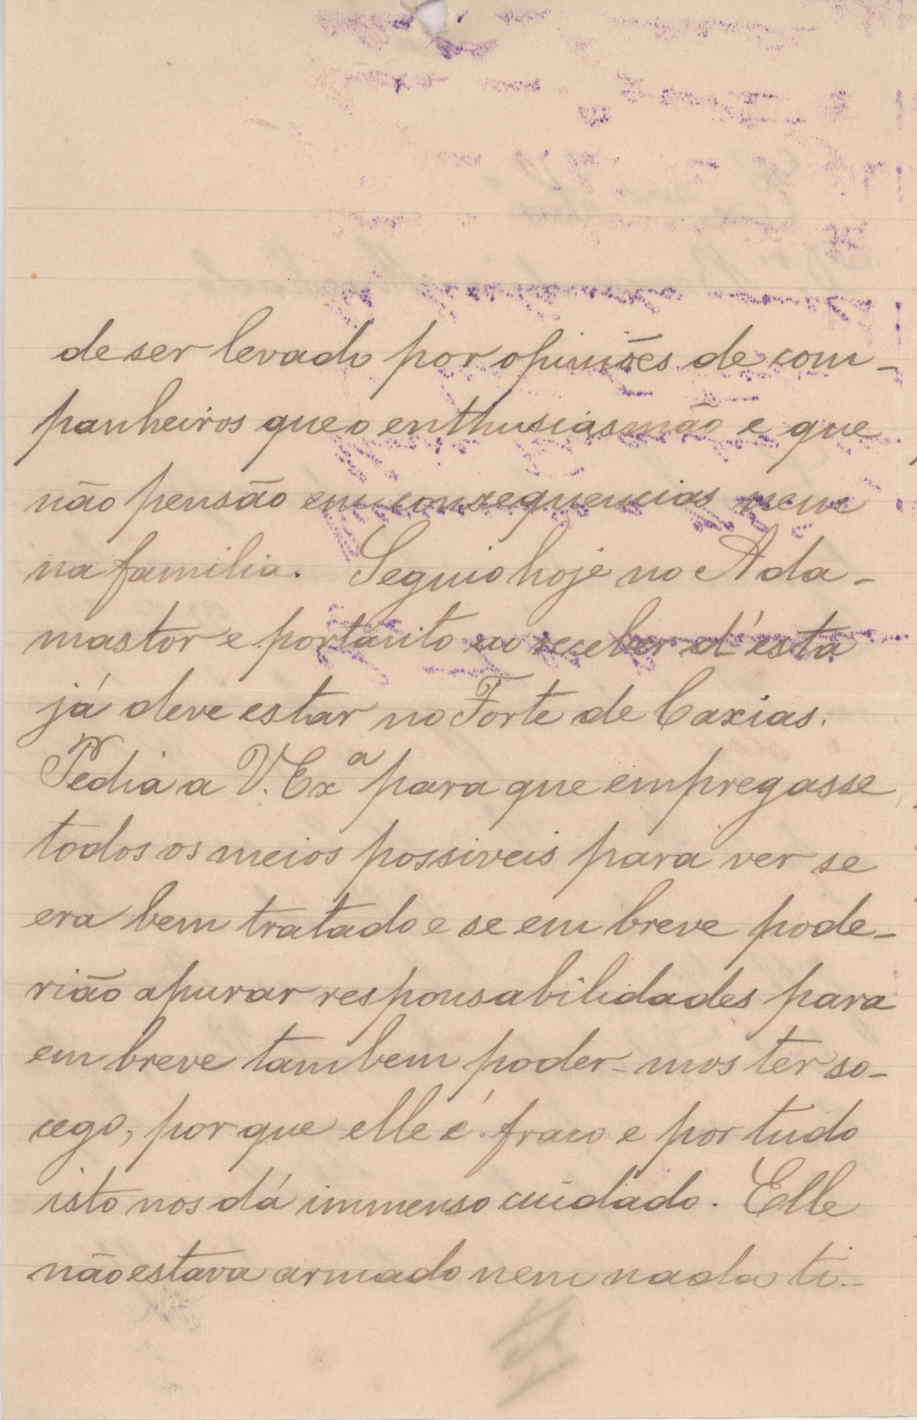 de ser levado por opiniões de com-
panheiros que o enthusiasmão e que
não pensão em consequencias nem
na familia. Seguio hoje no Ada-
mastor e portanto ao receber d'esta
já deve estar no Forte de Caxias.
Pedia a V. Exª para que empregasse
todos os meios possiveis para ver se
era bem tratado e se em breve pode-
rião apurar responsabilidades para
em breve tambem poder-mos ter so-
cego, por que elle é fraco e por tudo
isto nos dá immenso cuidado. Elle
não estava armado nem nada ti-